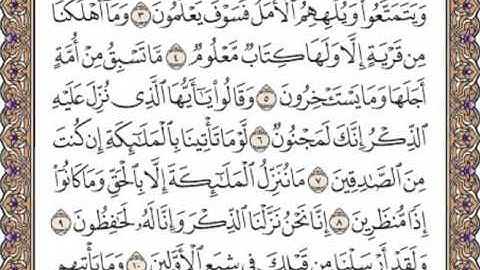 وَيَتَمَتَّعُوا۟ وَيُلْهِهِمُ ٱلْأَمَلُ فَسَوْفَ يَعْلَمُونَ ٣ وَمَآ أَهْلَكْنَا
مِن قَرْيَةٍ إِلَّا وَلَهَا كِتَابٌ مَّعْلُومٌ ٤ مَّا تَسْبِقُ مِنْ أُمَّةٍ
أَجَلَهَا وَمَا يَسْتَـْٔخِرُونَ ٥ وَقَالُوا۟ يَـٰٓأَيُّهَا ٱلَّذِى نُزِّلَ عَلَيْهِ
ٱلذِّكْرُ إِنَّكَ لَمَجْنُونٌ ٦ لَّوْ مَا تَأْتِينَا بِٱلْمَلَـٰٓئِكَةِ إِن كُنتَ
مِنَ ٱلصَّـٰدِقِينَ ٧ مَا نُنَزِّلُ ٱلْمَلَـٰٓئِكَةَ إِلَّا بِٱلْحَقِّ وَمَا كَانُوٓا۟
إِذًا مُّنظَرِينَ ٨ إِنَّا نَحْنُ نَزَّلْنَا ٱلذِّكْرَ وَإِنَّا لَهُۥ لَحَـٰفِظُونَ ٩
وَلَقَدْ أَرْسَلْنَا مِن قَبْلِكَ فِى شِيَعِ ٱلْأَوَّلِينَ ١٠ وَمَا يَأْتِيهِم